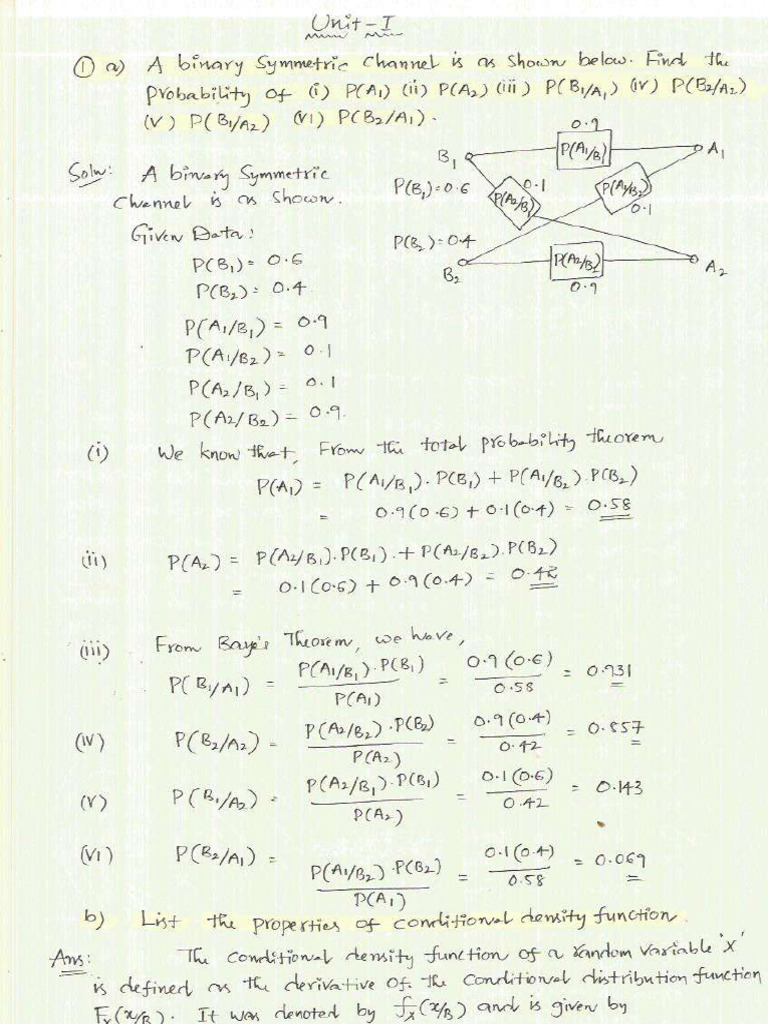 Unit-I
① a) A binary Symmetric Channel is as shown below. Find the
probability of (i) P(A1) (ii) P(A2) (iii) P(B1/A1) (iv) P(B2/A2)
(V) P(B1/A2) (VI) P(B2/A1).
Soln: A binary Symmetric
Channel is as shown.
B1 0.9 P(A1/B1) A1
P(B1)=0.6 P(A2/B1) 0.1 P(A1/B2) 0.1
P(B2)=0.4
B2 P(A2/B2) 0.9 A2
Given Data:
P(B1)= 0.6
P(B2)= 0.4
P(A1/B1) = 0.9
P(A1/B2) = 0.1
P(A2/B1) = 0.1
P(A2/B2) = 0.9.
(i) We know that, From the total probability theorem
P(A1) = P(A1/B1).P(B1) + P(A1/B2).P(B2)
= 0.9(0.6)+0.1(0.4) = 0.58
(ii) P(A2) = P(A2/B1).P(B1).+P(A2/B2).P(B2)
= 0.1(0.6) + 0.9(0.4) = 0.42
(iii) From Baye's Theorem, we have,
P(B1/A1) = P(A1/B1).P(B1) / P(A1) = 0.9(0.6) / 0.58 = 0.931
(IV) P(B2/A2) = P(A2/B2).P(B2) / P(A2) = 0.9(0.4) / 0.42 = 0.857
(V) P(B1/A2) = P(A2/B1).P(B1) / P(A2) = 0.1(0.6) / 0.42 = 0.143
(VI) P(B2/A1) = P(A1/B2).P(B2) / P(A1) = 0.1(0.4) / 0.58 = 0.069
b) List the properties of conditional density function.
Ans: The conditional density function of a random variable 'X'
is defined as the derivative of. the conditional distribution function
Fx(x/B). It was denoted by fx(x/B) and is given by